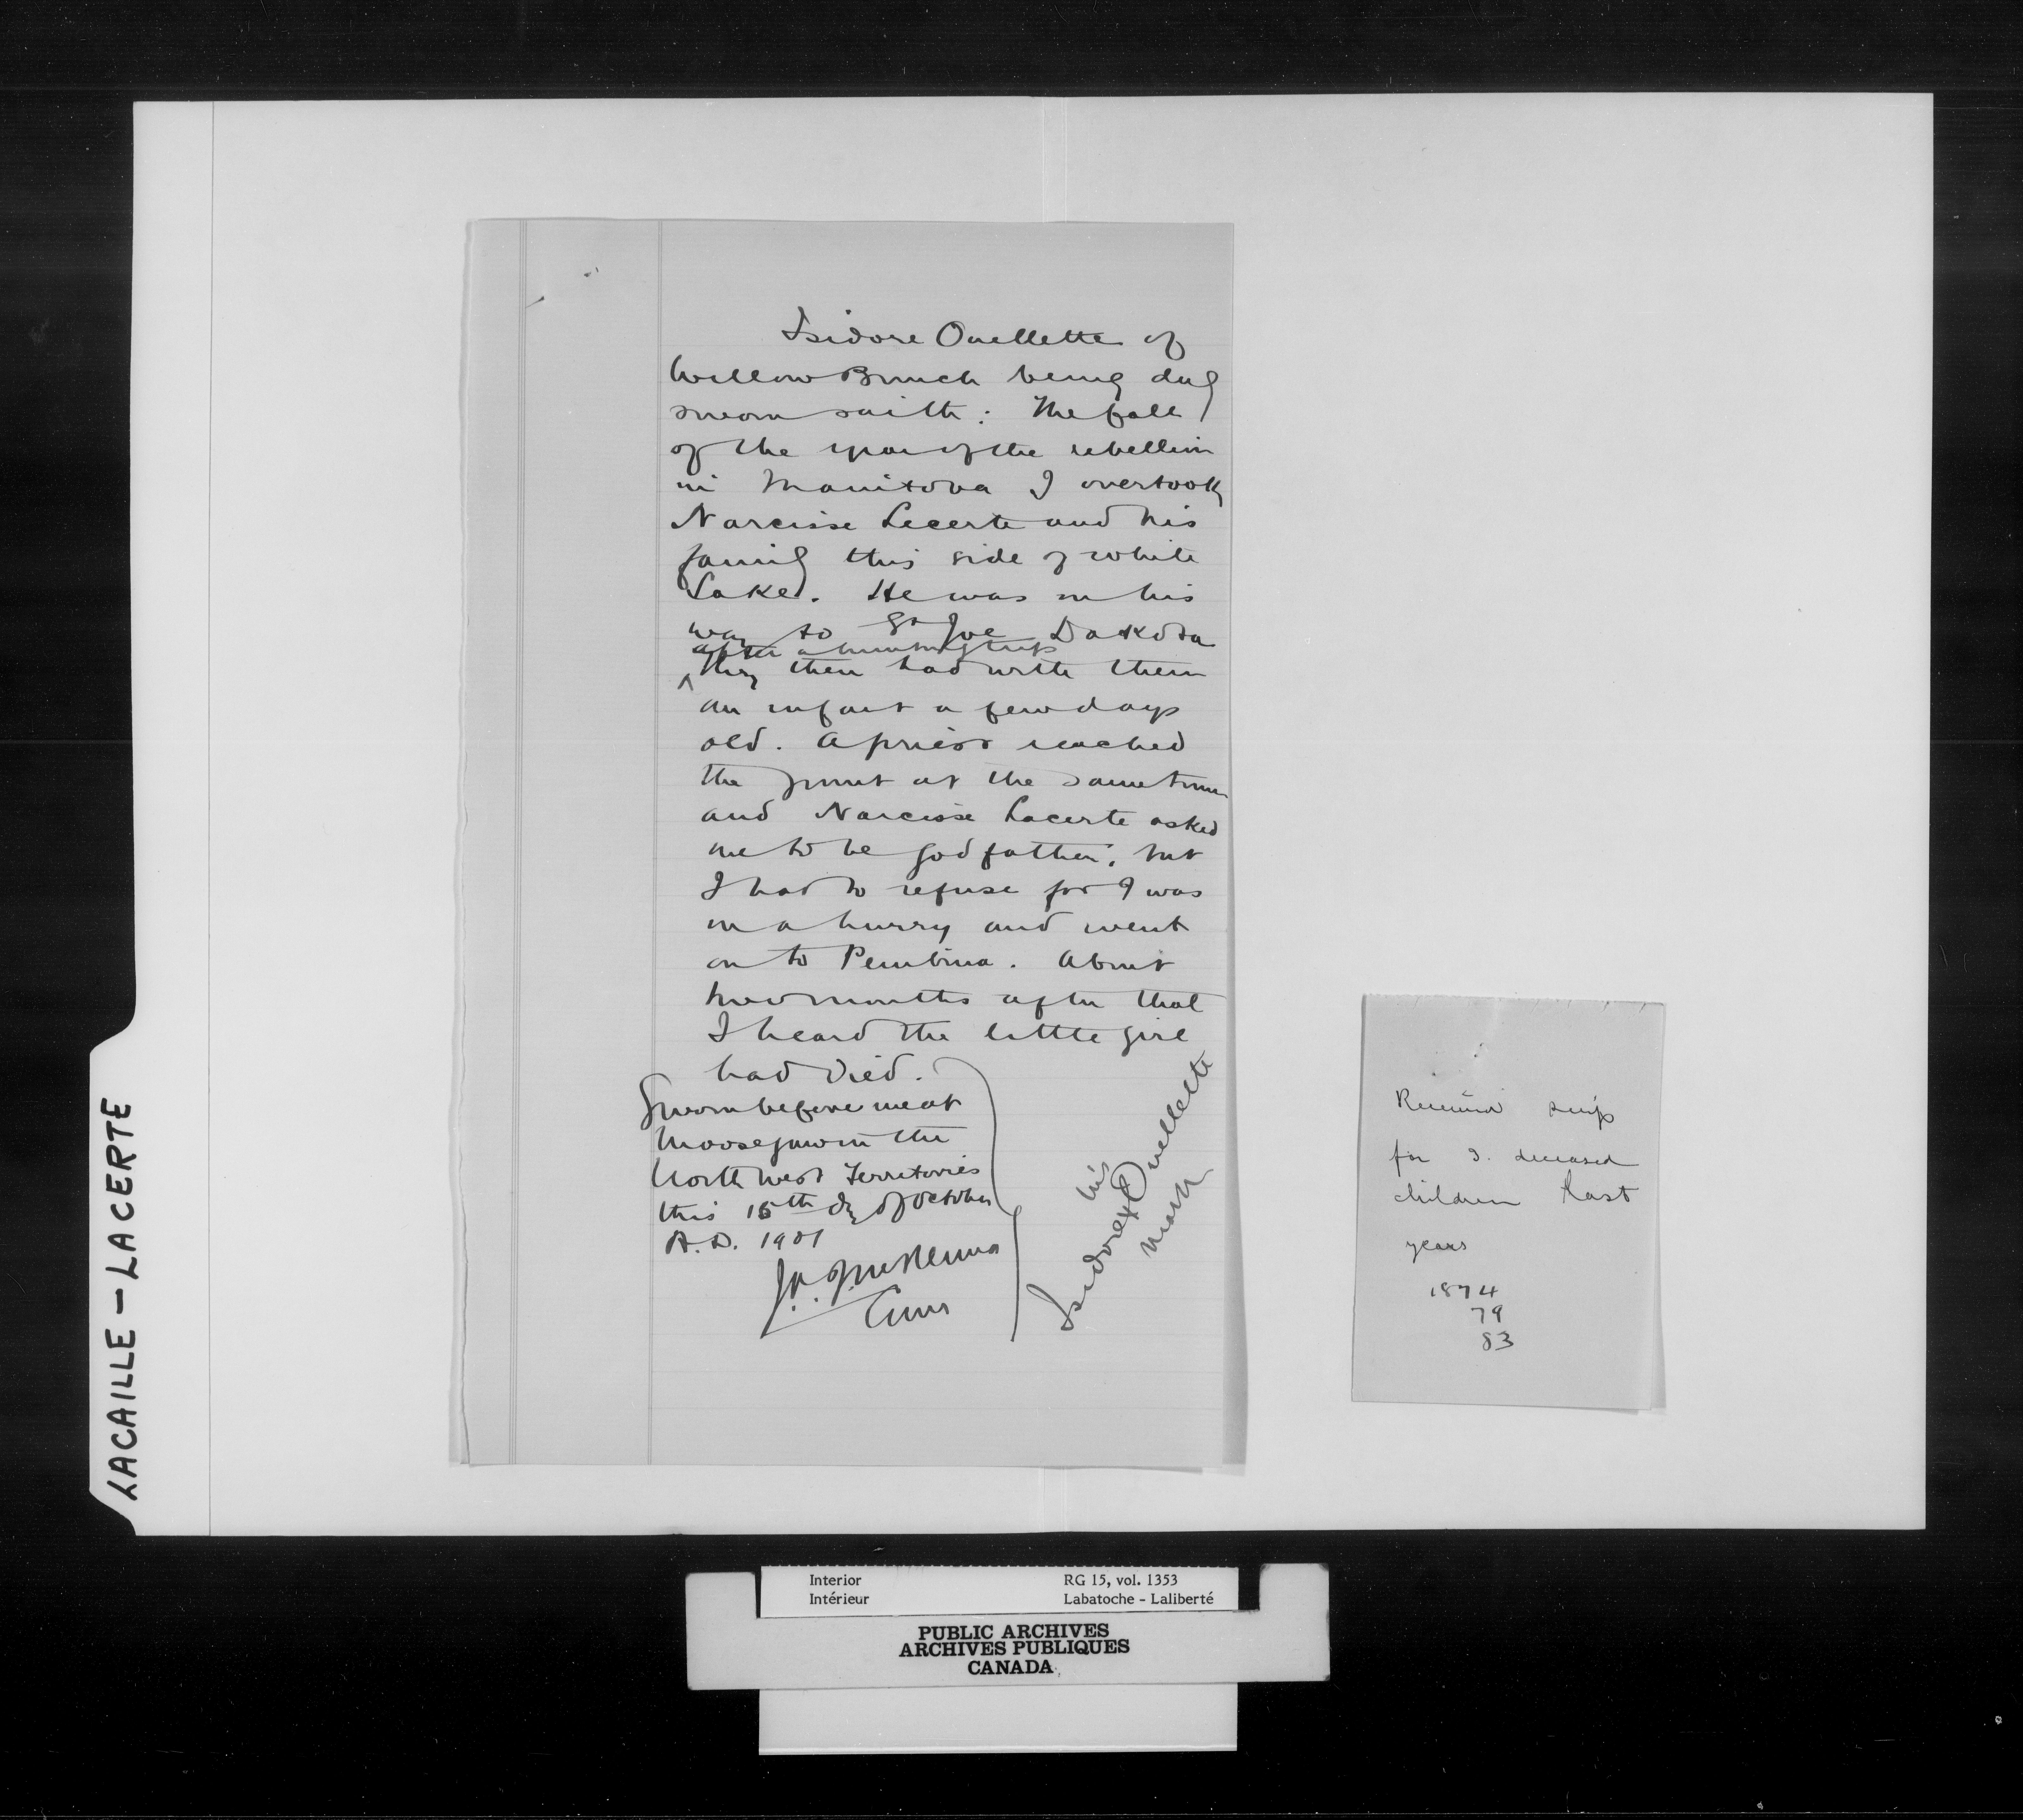 Isidore Ouellette of
Willow Bunch being duly
sworn saith: The fall
of the year of the rebellion
in Manitoba I overtook
Narcisse Lecerte and his
family this side of White
Lake. He was on his
way to St Joe Dakota
after a hunting trip
They then had with them
an infant a few days
old. A priest reached
the point at the same time
and Narcisse Lacerte asked
me to be godfather, but
I had to refuse for I was
in a hurry and went
on to Pembina. About
two months after that
I heard the little girl
had died.
Sworn before me at
Moosejaw in the
North West Territories
this 15th day of October
A.D. 1901
J.A. J. McKenna
Comr
his
Isidore x Ouellette
mark
Received scrip
for 3. deceased
children last
years
1874
79
83
LACAILLE - LACERTE
Interior RG 15, vol. 1353
Intérieur Labatoche - Laliberté
PUBLIC ARCHIVES
ARCHIVES PUBLIQUES
CANADA